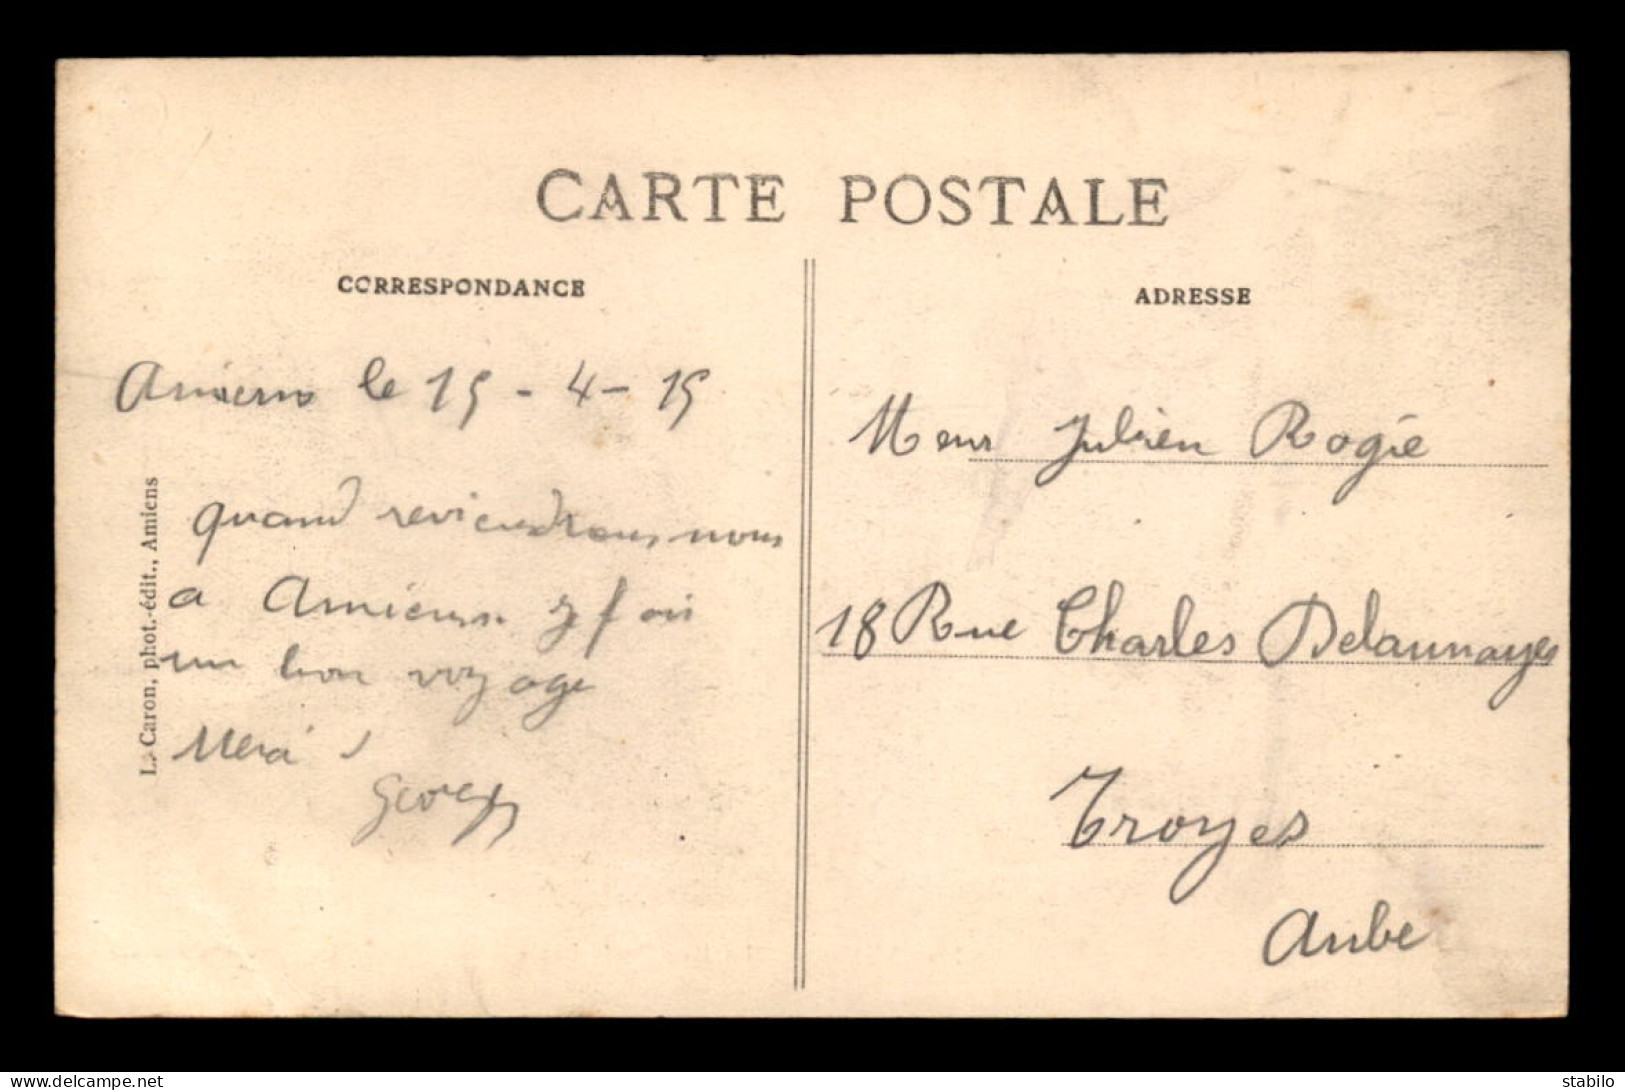 CARTE POSTALE
CORRESPONDANCE
Amiens le 15 - 4 - 15
quand reviendrons nous
a Amiens. Je fais
un bon voyage
Merci !
Georges
L. Caron, phot.-édit., Amiens
ADRESSE
Meur Julien Rogie
18 Rue Charles Delaunayes
Troyes
Aube
www.delcampe.net
stabilo